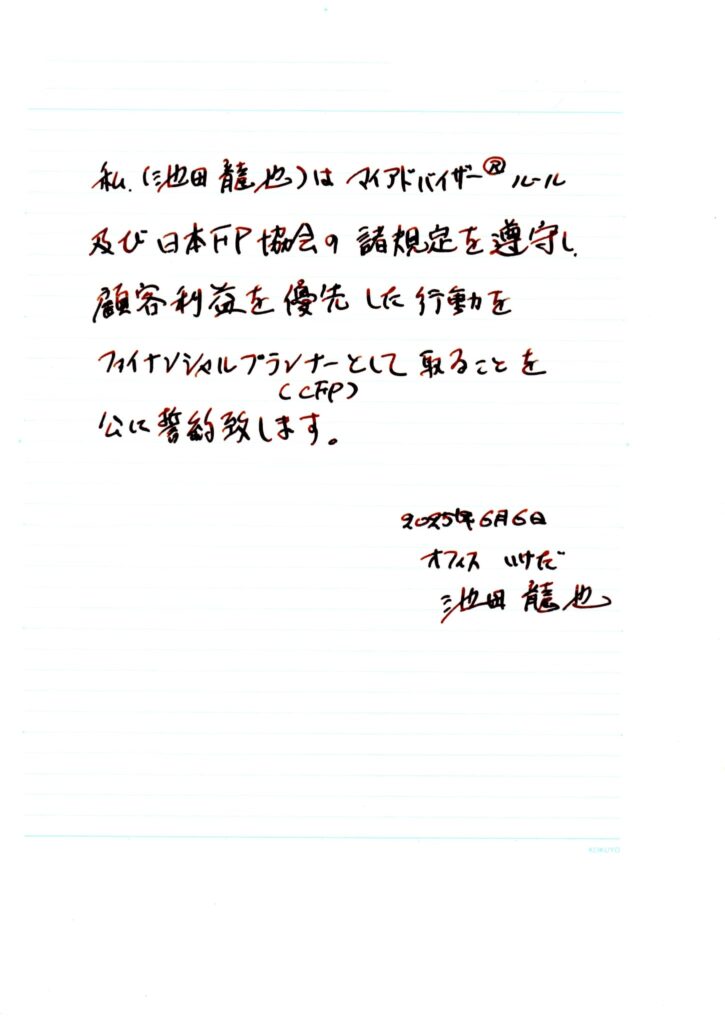 私、(池田 龍也)は マイアドバイザー®ルール
及び 日本FP協会の 諸規定を遵守し、
顧客利益を優先した行動を
ファイナンシャルプランナーとして 取ることを
(CFP)
公に誓約致します。
2025年6月6日
オフィス いけだ
池田 龍也
KOKUYO